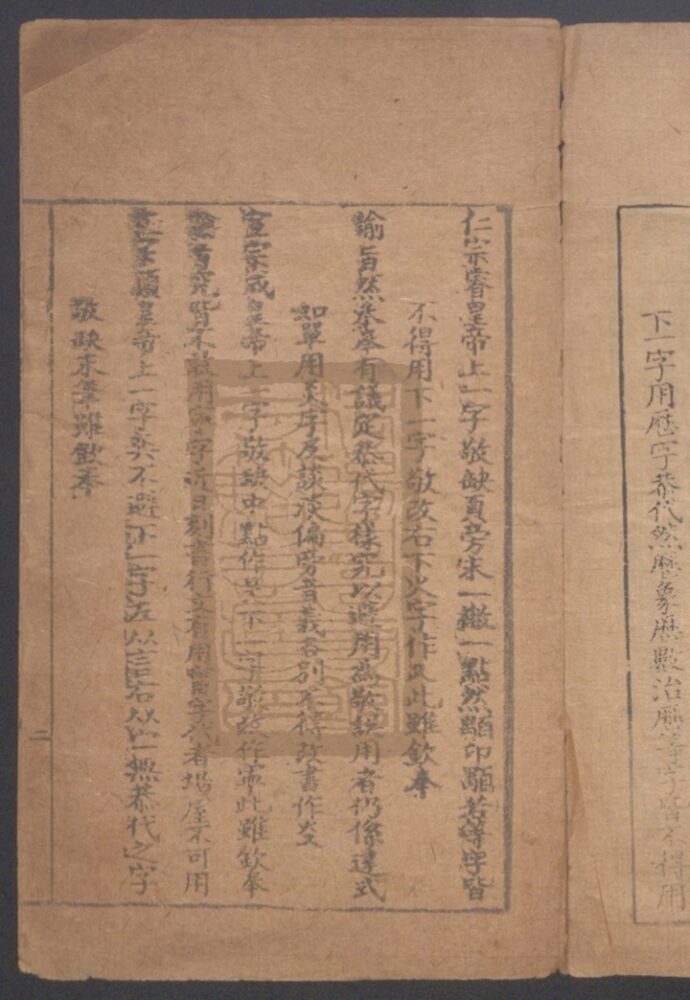 下一字用歷字恭代然歷象歷數治歷等字皆不得用
仁宗睿皇帝上一字敬缺頁旁末一撇一點然顒卬顒若等字皆
不得用下一字敬改右下火字作又此雖欽奉
諭旨然恭奉有議定恭代字樣究以避用為敬誤用者仍係違式
如單用炎字及談淡偏旁音義各別不得改書作炏
宣宗成皇帝上一字敬缺中點作 下一字敬改作寍此雖欽奉
諭旨究皆不敢用 字近日刻書行文有用 字 者場屋不可用
文宗顯皇帝上一字例不避下一字左从言右从 無恭代之字
敬缺末筆雖欽奉
二